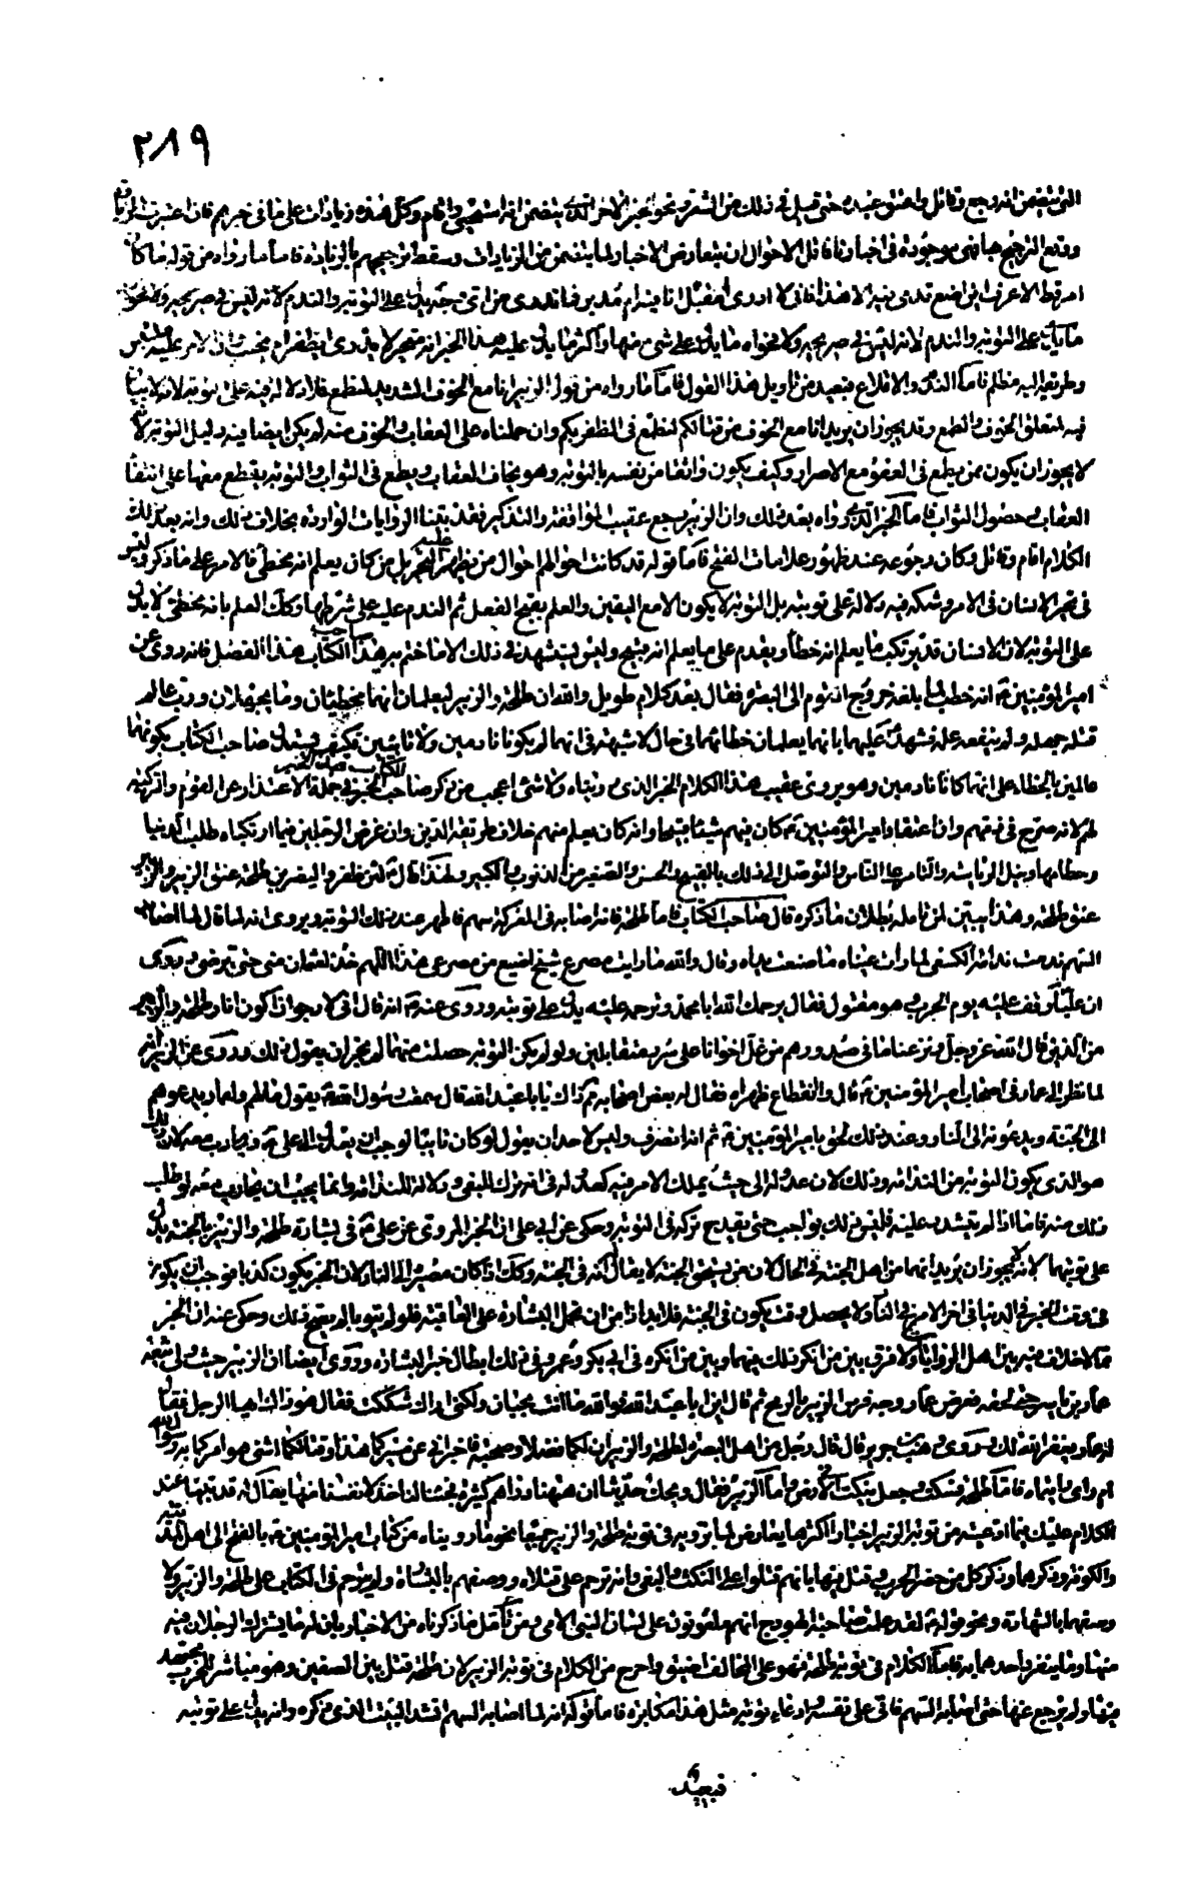 ٢٨٩
الذي يتضمن انه رجع وقاتل واعتق عبده حتى قيل في ذلك من الشعر ونحو الخبر الاخر الذي يتضمن انه استحيى واقام وكل هذه زيادات على ما في خبرهم فان اعتبرت الزيادة
ووقع الترجيح بها فهي موجودة في اخبارنا فاقل الاحوال ان يتعارض الاخبار لما يتضمن من الزيادات وسقط ترجيحهم بالزيادة فاما ما رواه من قوله ما كان
امر قط الا عرفت اين اضع قدمي فيه الا هذا فاني لا ادري امقبل انا فيه ام مدبر فما ندري من اي وجه يدل على التوبة والندم لانه ليس في صريحه ولا فحواه
ما يدل على التوبة والندم لانه ليس في صريحه ولا فحواه ما يدل على شيء منها واكثر ما يدل عليه هذا الخبر انه متحير لا يدري ايظفر ام يخيب وان الامر عليه ملتبس
وطريقه اليه مظلم فاما الندم والاقلاع فبعيد من تاويل هذا القول فاما ما رواه من قول الزبير انا مع الخوف الشديد لنطمع فلا دلالة فيه على توبة لانه لا يبين
فيه لمتعلق الخوف والطمع وقد يجوز ان يريد انا مع الخوف من قتالكم لنطمع في الظفر بكم وان حملناه على العقاب والخوف منه لم يكن ايضا فيه دليل التوبة لانه
لا يجوز ان يكون ممن يطمع في العفو مع الاصرار وكيف يكون واثقا من نفسه بالتوبة وهو يخاف العقاب ويطمع في الثواب والتوبة يقطع معها على انتفاء
العقاب وحصول الثواب فاما الخبر الذي رواه بعد ذلك وان الزبير رجع عقيب الموافقة والتذكير فقد بينا الروايات الواردة بخلاف ذلك وانه بعد ذلك
الكلام اقام وقاتل وكان رجوعه عند ظهور علامات الفتح فاما قوله قد كانت احوالهم احوال من يظهر عليه التحير بل من كان يعلم انه مخطئ فالامر على ما ذكره وليس
في تحير الانسان في الامر وشكه فيه دلالة على توبته بل التوبة لا يكون الا مع اليقين والعلم بقبح الفعل ثم الندم عليه على شرطها وكك العلم بانه مخطئ لا يدل
على التوبة لان الانسان قد يرتكب ما يعلم انه خطأ ويقدم على ما يعلم انه قبيح وليس يستشهد في ذلك الا ما ختم به هذا صاحب الكتاب هذا الفصل فانه روى عن
امير المؤمنين ع انه خطب لما بلغه خروج القوم الى البصرة فقال بعد كلام طويل والله ان طلحة والزبير ليعلمان انهما مخطئان وما يجهلان ورب عالم
قتله جهله ولم ينفعه علمه فشهد عليهما بانهما يعلمان خطائهما في حال لا شبهة في انهما لم يكونا نادمين ولا تائبين فكيف يستدل صاحب الكتاب بكونهما
عالمين بالخطاء على انهما كانا نادمين وهو يروي عقيب هذا الكلام الخبر الذي رويناه ولا شئ اعجب من ذكر صاحب الكتاب هذا الخبر في جملة الاعتذار عن القوم والتزكية
لهم لانه صريح في ذمهم وان اعتقاد امير المؤمنين ع كان فيهم شيئا قبيحا وانه كان يعلم منهم خلاف طريقة الدين وان غرض الرجلين فيما ارتكباه طلب الدنيا
وحطامها ونيل الرياسة والتامر على الناس والتوصل الى ذلك بالقبيح والحسن والصغير من الذنوب والكبير ولهذا قال ع لئن ظفروا ليضربن طلحة عنق الزبير والزبير
عنق طلحة وهذا يبين لمن تامله بطلان ما ذكره قال صاحب الكتاب فاما طلحة فانه اصابه في المعركة سهم فاظهر عند ذلك التوبة ويروى انه لما قال لما اصابه
السهم ندمت ندامة الكسعي لما رات عيناه ما صنعت يداه وقال والله ما رايت مصرع شيخ اضيع من مصرعي هذا اللهم خذ لعثمان مني حتى ترضى وروى
ان عليا وقف عليه يوم الحرب وهو مقتول فقال يرحمك الله ابا محمد وترحمه عليه يدل على توبته وروى عنه ع انه قال اني لارجو ان اكون انا وطلحة والزبير
من الذين قال الله عز وجل ونزعنا ما في صدورهم من غل اخوانا على سرر متقابلين ولو لم يكن التوبة حصلت منهما لم يجز ان يقول ذلك وروى عن الزبير انه
لما نظر الى عمار في اصحاب امير المؤمنين ع قال وا انقطاع ظهراه فقال له بعض اصحابه مم ذاك يا ابا عبد الله قال سمعت رسول الله ص يقول مالهم ولعمار يدعوهم
الى الجنة ويدعونه الى النار وعند ذلك لحق بامير المؤمنين ع ثم انه انصرف وليس لاحد ان يقول لو كان تائبا لوجب ان يقاتل مع علي ع ويحارب معه لان ذلك
هو الذي يكون التوبة من الندامة وذلك لان عدوله الى حيث يملك الامر فيه كعدوله في انه ترك للبغي ودلالة للندامة وانما يجب ان يحارب معه لو طلب
ذلك منه فاما اذا لم يتشدد عليه فليس ذلك بواجب حتى يقدح تركه في التوبة وحكى عن ابي علي ان الخبر المروي عن علي ع في بشارة طلحة والزبير بالجنة يدل
على توبتهما لانه لا يجوز ان يريد انهما من اهل الجنة في الحال لان من يستحق الجنة لا يقال انه في الجنة وكك اذا كان مصيره الى النار لان الخبر يكون كذبا فوجب ان يكون
عمار بن ياسر حتى لحقه فعرض عمار وجه فرس الزبير بالرمح ثم قال اين ابا عبد الله فوالله ما انت بجبان ولكني اراك شككت فقال هو ذاك اما الرجل فقال
لم راي رايتماه فاما طلحة فسكت وجعل ينكت في الارض واما الزبير فقال ويحك حدثنا ان ههنا دراهم كثيرة فجئنا لناخذ لانفسنا منها يقال له قد بينا عند
الكلام عليك فيما ادعيته من توبة الزبير اخبارا اكثرها يعارض لما يرويه في توبة طلحة والزبير جميعا نحو ما رويناه من كتاب امير المؤمنين ع بالفتح الى اهل المدينة
والكوفة وذكرهما وذكر كل من حضر الحرب وقتل فيها بانهم قتلوا على النكث والبغي وانه ترحم على قتلاه ووصفهم بالشهادة ولم يترحم في الكتاب على طلحة والزبير ولا
وصفهما بالشهادة ونحو قوله لقد علمت صاحبة الهودج انهم ملعونون على لسان النبي الامي ومن تامل ما ذكرناه من الاخبار بان له ما يشترك الرجلان فيه
منها وما ينفرد احدهما به فاما الكلام في توبة طلحة فهو على المخالف اضيق واحرج من الكلام في توبة الزبير لان طلحة قتل بين الصفين وهو مباشر للحرب مجتهد
فيها ولم يرجع عنها حتى اصابه السهم فاتى على نفسه وادعاء توبة مثل هذا مكابرة فاما قوله انه لما اصابه السهم انشد البيت الذي ذكره وانه يدل على توبته
فبعيد